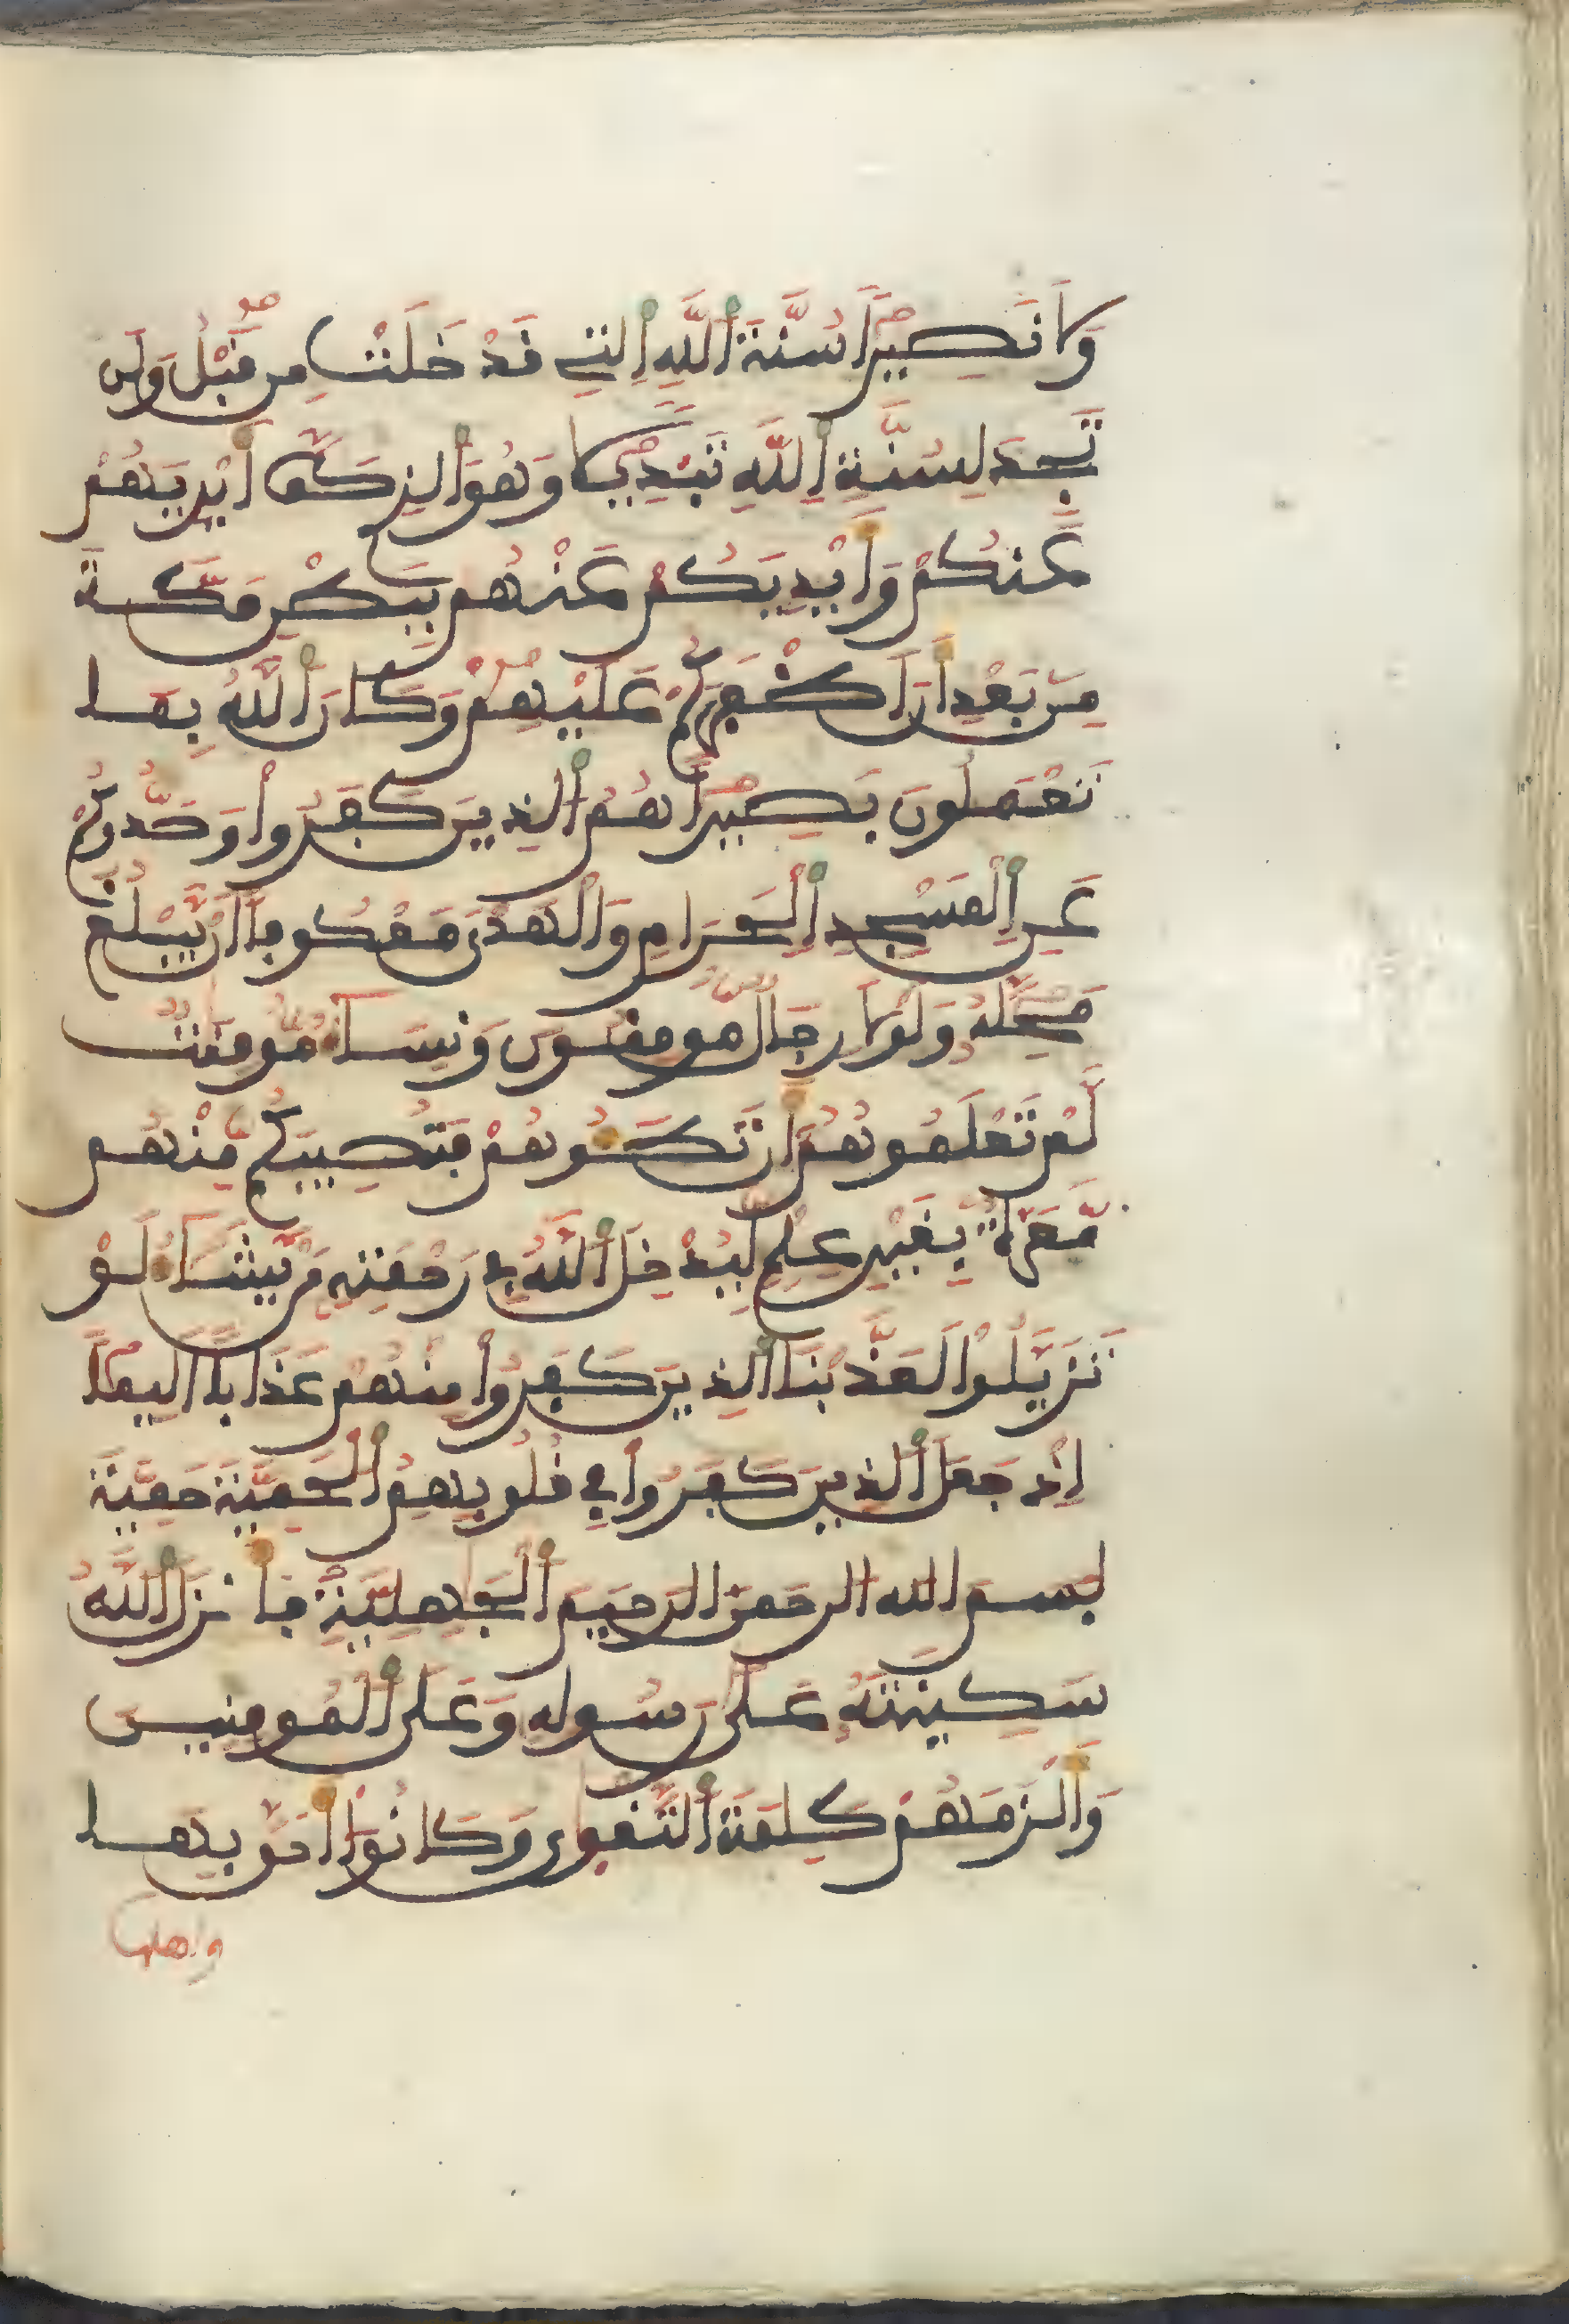 وَلَا نَصِيرًا سُنَّةَ اَللَّهِ اِلتِے قَدْ خَلَتْ مِن قَبْلُ وَلَن
تَجِدَ لِسُنَّةِ اِللَّهِ تَبْدِيلًا وَهُوَ اَلذِے كَفَّ أَيْدِيَهُمْ
عَنكُمْ وَأَيْدِيَكُمْ عَنْهُم بِبَطْنِ مَكَّةَ
مِنۢ بَعْدِ أَنَ اَظْفَرَكُمْ عَلَيْهِمْ وَكَانَ اَللَّهُ بِمَا
تَعْمَلُونَ بَصِيرًا هُمُ اُلذِينَ كَفَرُواْ وَصَدُّوكُمْ
عَنِ اِلْمَسْجِدِ اِلْحَرَامِ وَالْهَدْىَ مَعْكُوفًا اَنْ يَّبْلُغَ
مَحِلَّهُۥ وَلَوْلَا رِجَالٌ مُّومِنُونَ وَنِسَآءٌ مُّومِنَٰتٌ
لَّمْ تَعْلَمُوهُمُۥٓ أَن تَطَـُٔوهُمْ فَتُصِيبَكُم مِّنْهُم
مَّعَرَّةٌۢ بِغَيْرِ عِلْمٍ لِّيُدْخِلَ اَللَّهُ فِے رَحْمَتِهِۦ مَنْ يَّشَآءُ لَوْ
تَزَيَّلُواْ لَعَذَّبْنَا اَلذِينَ كَفَرُواْ مِنْهُمْ عَذَابًا اَلِيمًا
اِذْ جَعَلَ اَلذِينَ كَفَرُواْ فِے قُلُوبِهِمُ اُلْحَمِيَّةَ حَمِيَّةَ
بسم الله الرحمن الرحيم اَلْجَٰهِلِيَّةِ فَأَنزَلَ اَللَّهُ
سَكِينَتَهُۥ عَلَىٰ رَسُولِهِۦ وَعَلَى اَلْمُومِنِينَ
وَأَلْزَمَهُمْ كَلِمَةَ اَلتَّقْوَىٰ وَكَانُوٓاْ أَحَقَّ بِهَا
واهلها